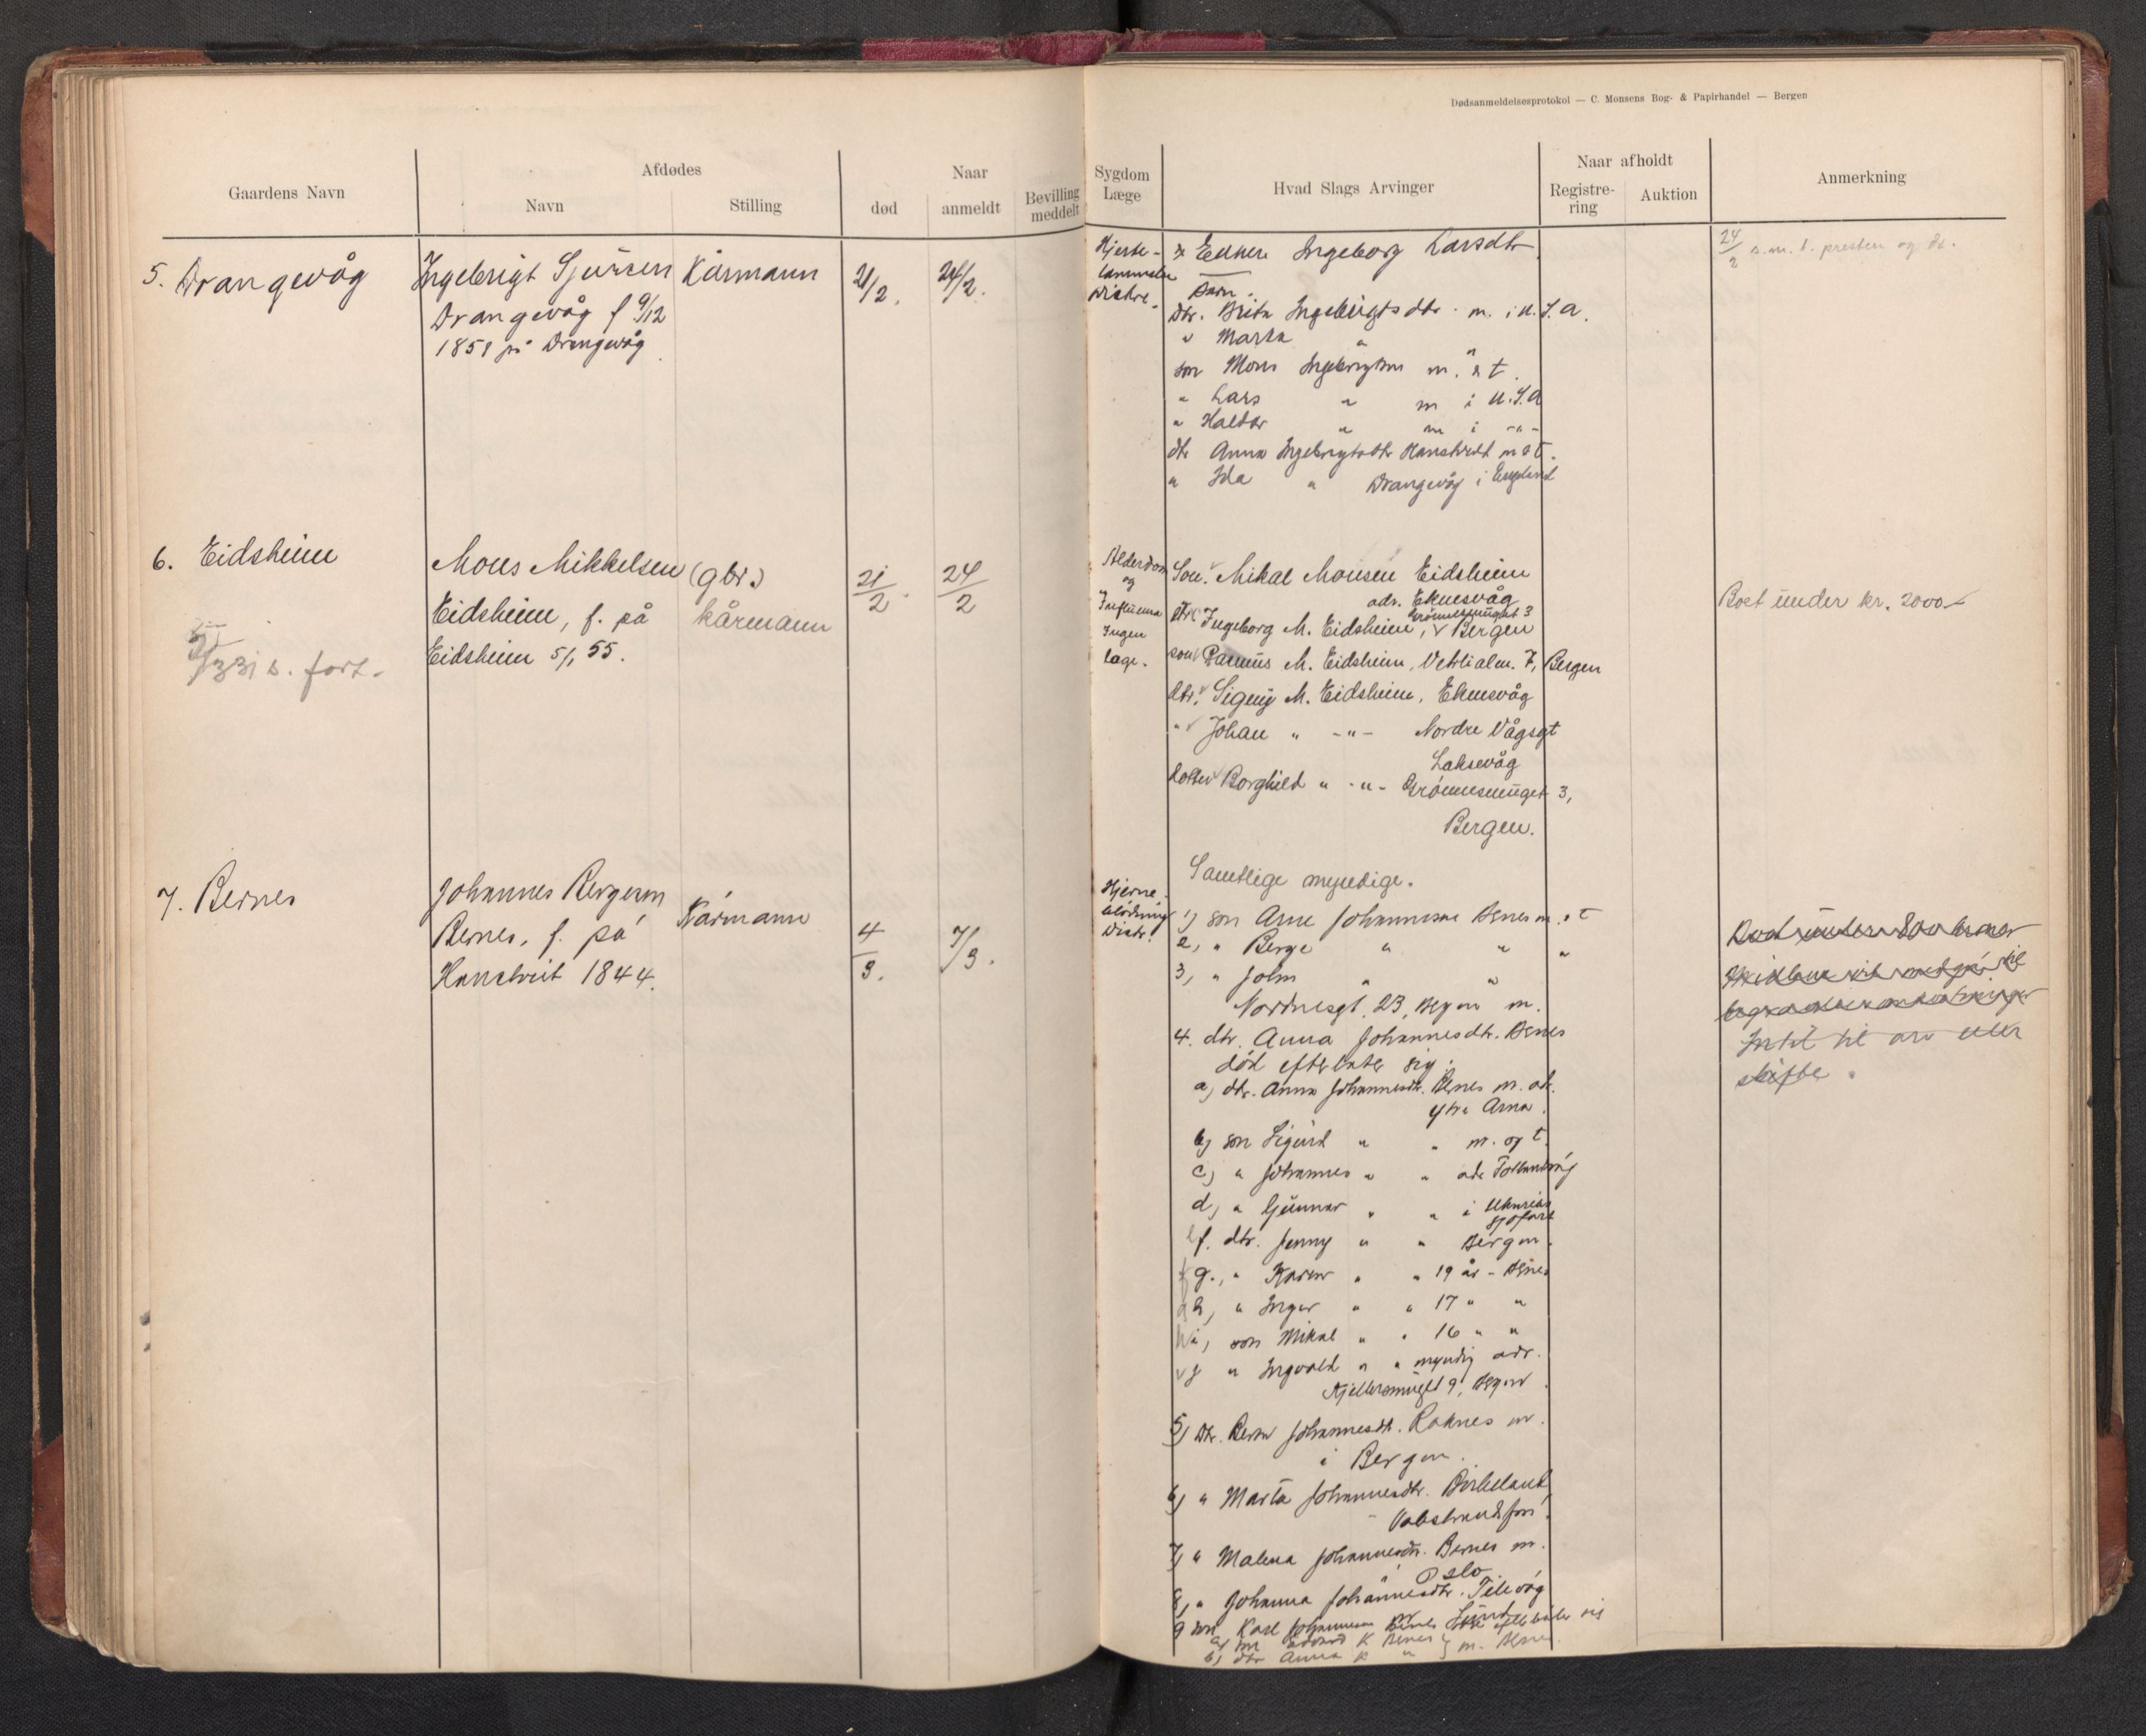 Dødsanmeldelsesprotokol — C. Monsens Bog- & Papirhandel — Bergen
Gaardens Navn
Afdødes
Navn
Stilling
Naar
død
anmeldt
Bevilling meddelt
Sygdom
Læge
Hvad Slags Arvinger
Naar afholdt
Registre-
ring
Auktion
Anmerkning
5. Drangevåg
Ingebrigt Sjursen
Drangevåg f 9/12
1851 på Drangevåg
Kårmann
21/2.
24/2.
Hjerte-
lammelse
Distre.
Enke Ingeborg Larsdtr
Barn.
dtr. Brita Ingebrigtsdtr. m. i U.S.A.
" Marta " "
son Mons Ingebrigtsen m. o t.
" Lars " m i U.S.A
" Haldor " m i -"-
dtr Anna Ingebrigtsdtr Hanstveit m o t.
" Ida " Drangevåg i England
24/2 s.m. t. presten og
6. Eidsheim
Mons Mikkelsen
Eidsheim, f. på
Eidsheim 5/1 55.
(gbr.)
kårmann
21/2.
24/2
Alderdom
og
Influensa
Ingen
læge.
Son. Mikal Monsen Eidsheim
adr. Eknesvåg
Grönnesmuget 3
dtr. Ingeborg M. Eidsheim, Bergen
son Rasmus M. Eidsheim, Vetrlialm. 7, Bergen
dtr. Signy M. Eidsheim, Eknesvåg
" Johan " -"- Nordre Vågsgt
Laksevåg
dotter Borghild " -"- Grönnesmuget 3,
Bergen.
Samtlige myndige.
Boet under kr. 2000.-
7. Bernes
Johannes Bergesen
Bernes, f. på
Hanstveit 1844.
Kårmann
4/3.
7/3.
Hjerne-
blödning
Distr.
1) son Arne Johannesen Bernes m. o t
2, " Berge " " "
3, " John " "
Nordnesgt. 23, Bergen m.
4. dtr. Anna Johannesdtr. Bernes
död efterlater sig:
a) dtr. Anna Johannesdtr. Bernes m. adr.
ytre Arna.
b) son Sigurd " " m. og t.
c) " Johannes " " adr
d, " Gunnar " " i
f. dtr. Jenny " " Bergen.
g., " Karen " " 19 år - Bernes
h, " Inger " " 17 " "
i, son Mikal " " 16 " "
j " Ingvald " " myndig adr.
Kjellersmuget 9, Bergen.
5) Dtr. Johannesdtr. Raknes m.
i Bergen.
6) " Marta Johannesdtr. Birkeland
Valestrandsfos.
7) " Malena Johannesdtr. Bernes m.
Oslo
8, " Johanna Johannesdtr. Tellevåg
9 son Karl Johannesen Bernes efterlater sig
a) son K Bernes
b) dtr Anna K " m. Bernes.
Intet til arv eller
skifte.